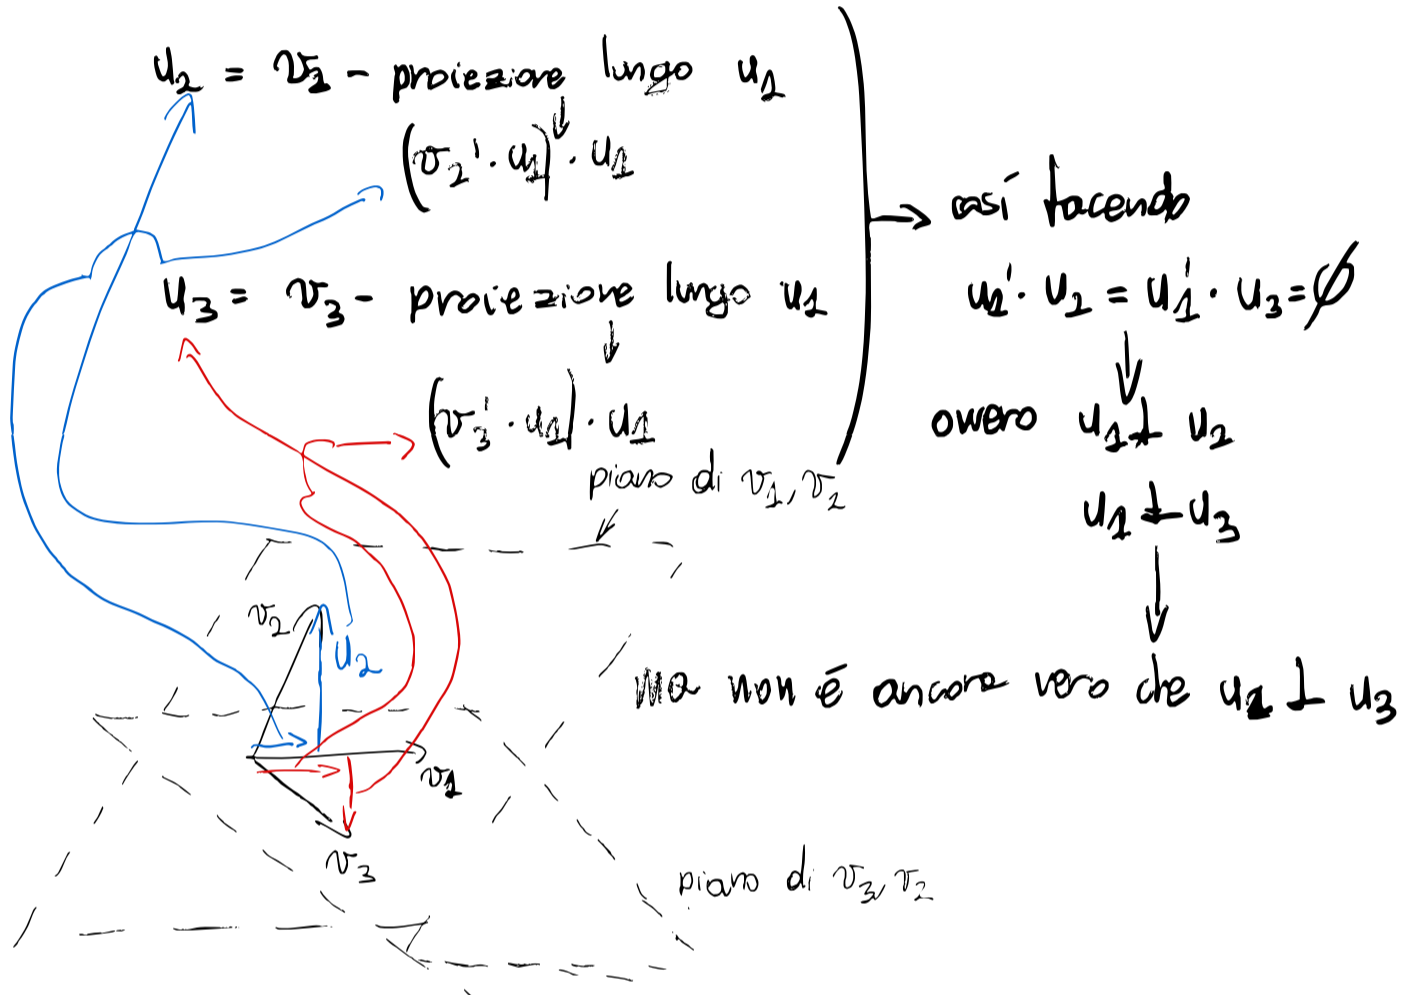 u₂ = v₂ - proiezione lungo u₁
(v₂' · u₁) · u₁
u₃ = v₃ - proiezione lungo u₁
(v₃' · u₁) · u₁
così facendo
u₁' · u₂ = u₁' · u₃ = ∅
ovvero u₁ ⊥ u₂
u₁ ⊥ u₃
ma non é ancora vero che u₂ ⊥ u₃
piano di v₁, v₂
v₂
u₂
v₁
v₃
piano di v₃, v₂